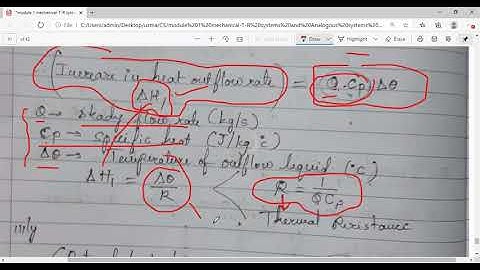 "module 1 mechanical-T-R systems
C:/Users/admin/Desktop/uzma/CS/module%201%20mechanical-T-R%20systems%20and%20Analogous%20systems%
of 42
(Increase in heat outflow rate) = (Q.Cp)Δθ
ΔH1
Q → steady flow rate (kg/s)
Cp → specific heat (J/kg °c)
Δθ → Temperature of outflow liquid (°c)
ΔH1 = Δθ/R R = 1/QCp
Thermal Resistance